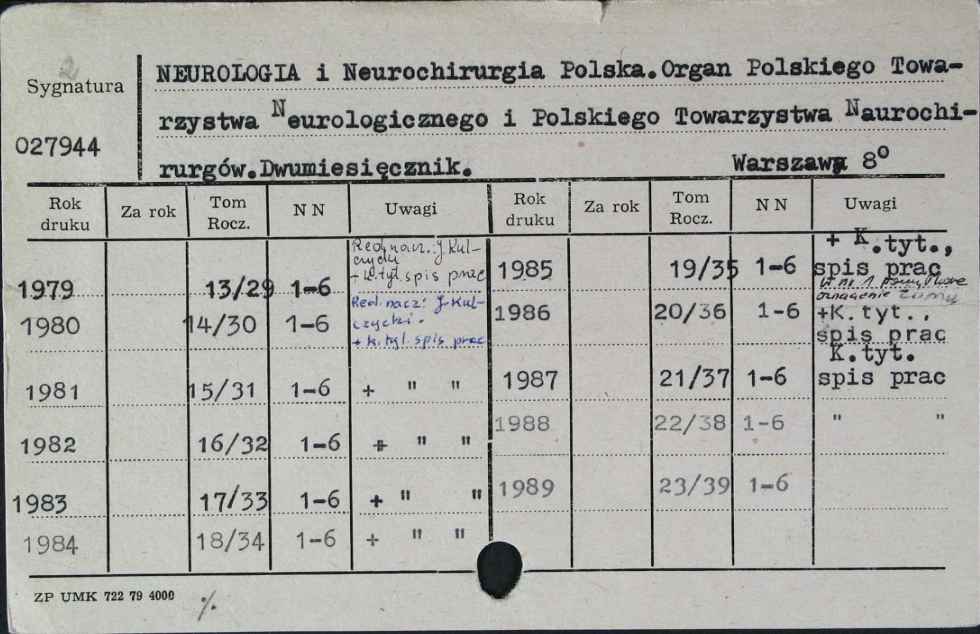 Sygnatura
027944
NEUROLOGIA i Neurochirurgia Polska.Organ Polskiego Towa-
rzystwa Neurologicznego i Polskiego Towarzystwa Naurochi-
rurgów.Dwumiesięcznik. Warszawa 8°
Rok druku Za rok Tom Rocz. N N Uwagi Rok druku Za rok Tom Rocz. N N Uwagi
1979 13/29 1-6 Red. nacz.: J. Kul-
czycki
+ k. tyt. spis prac
1980 14/30 1-6 Red. nacz: J. Kul-
czycki.
+ k. tyt. spis prac
1981 15/31 1-6 + " "
1982 16/32 1-6 + " "
1983 17/33 1-6 + " "
1984 18/34 1-6 + " "
1985 19/35 1-6 + K.tyt.,
spis prac
1986 20/36 1-6 W nr 1 pomyłkowe
oznaczenie
+K.tyt.,
spis prac
1987 21/37 1-6 K.tyt.
spis prac
1988 22/38 1-6 " "
1989 23/39 1-6
ZP UMK 722 79 4000 ./.